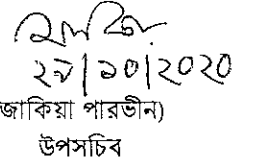 ২৯|১০|২০২০
জাকিয়া পারভীন)
উপসচিব